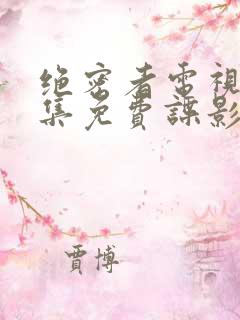 绝密者電視
集免費諜影
賈博